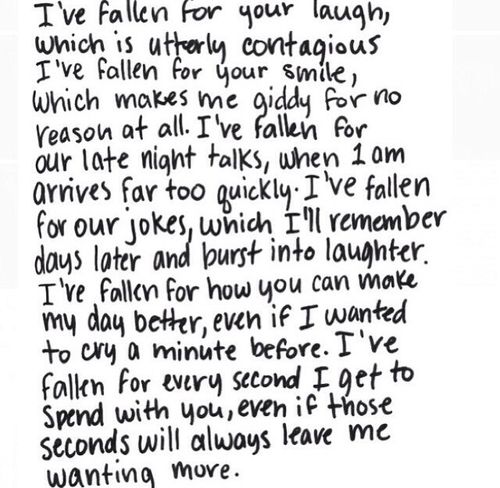 I've fallen for your laugh,
which is utterly contagious
I've fallen for your smile,
which makes me giddy for no
reason at all. I've fallen for
our late night talks, when 1 am
arrives far too quickly. I've fallen
for our jokes, which I'll remember
days later and burst into laughter.
I've fallen for how you can make
my day better, even if I wanted
to cry a minute before. I've
fallen for every second I get to
spend with you, even if those
seconds will always leave me
wanting more.